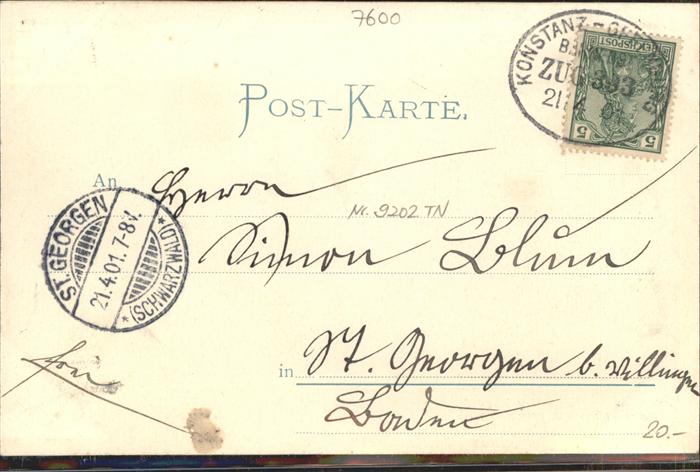 7600
KONSTANZ
REICHSPOST
ZUG 393
21 4 01
5 5
POST-KARTE.
An
Herrn
Nr. 9202 TN
Simon Blum
ST. GEORGEN
21.4.01.7-8V.
*(SCHWARZWALD)*
frei
in St. Georgen b. Villingen
Baden
20.-